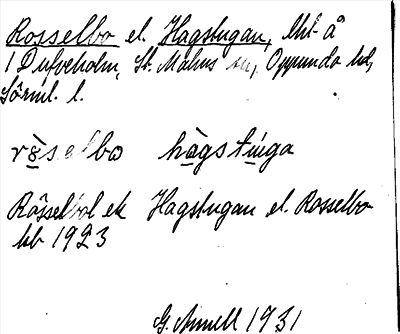 Rosselbo el. Hagstugan, lht å
1 Dufveholm, St. Malms sn, Oppunda hd,
Sörml. l.
ròsəlbo hàgstúga
Rosselbol ek Hagstugan el. Rosselbo
kb 1923
G. Annell 1931